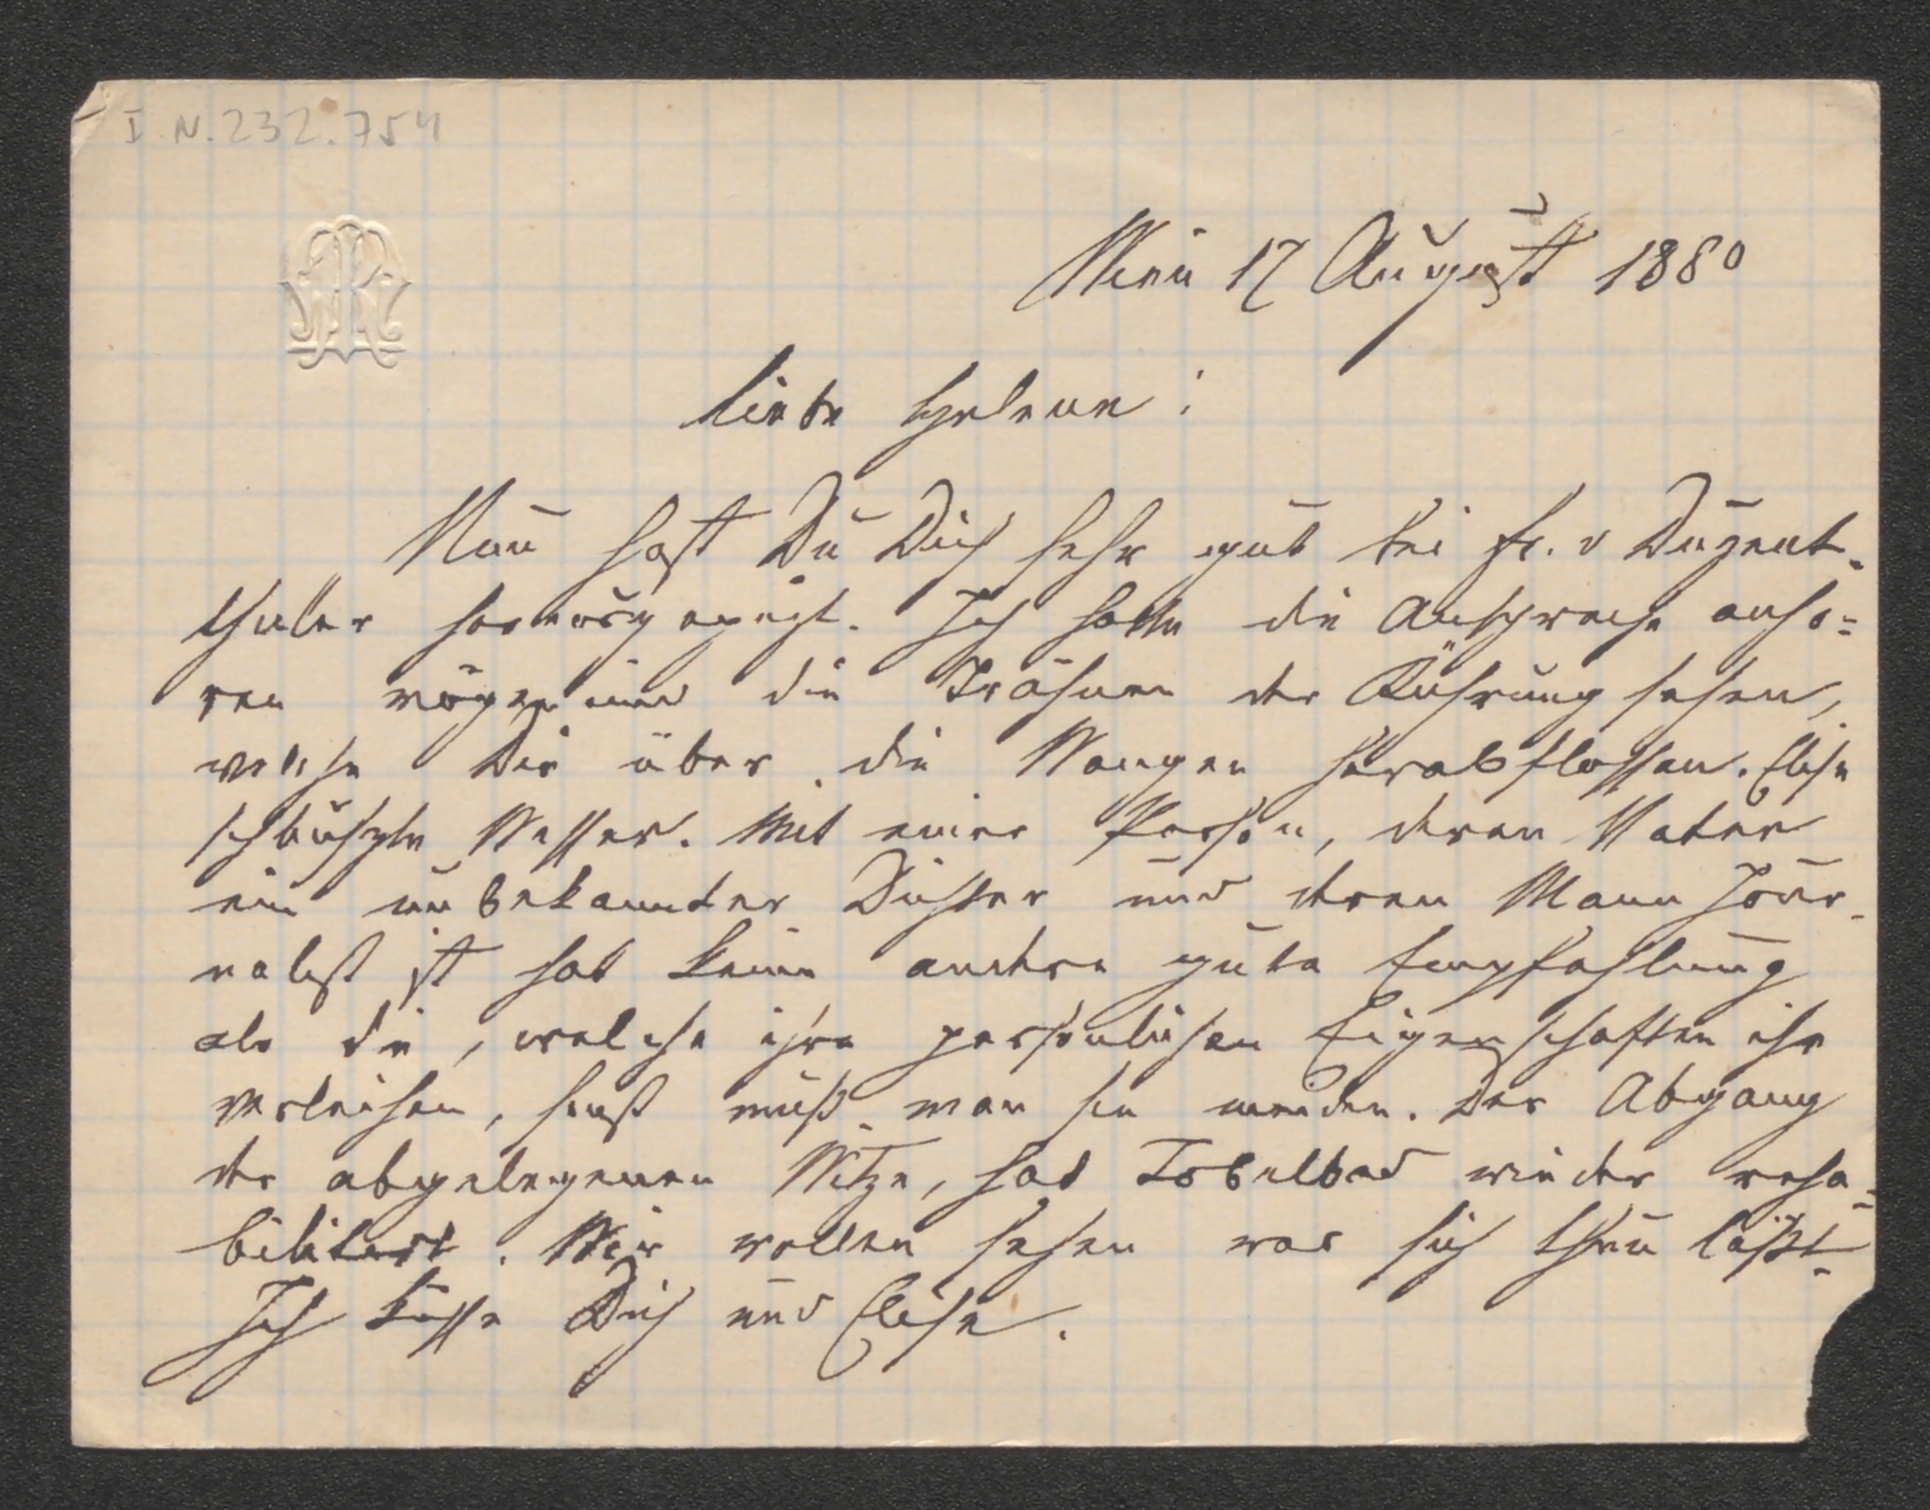 I. N. 232.754
Wien 17 August 1880
Liebe Helene!
Nun hast Du Dich sehr gut bei Fr. v
thaler Ich hätte die Ansprache anhö-
ren mögen und die Trähnen der Rührung sehen,
welche Dir über die Wangen herabflossen. Elise
schluchzte besser. Mit einer Person, deren Vater
ein unbekannter Dichter und deren Mann Jour-
nalist ist hat keine andere gute Empfehlung
als die, welche ihre persönlichen Eigenschaften ihr
verleihen, sonst muß man sie meiden. Der Abgang
der abgelegenen Witze, hat Tobelbad wieder reha-
bilitirt. Wir wollen sehen was sich thun läßt.
Ich küsse Dich und Elise.